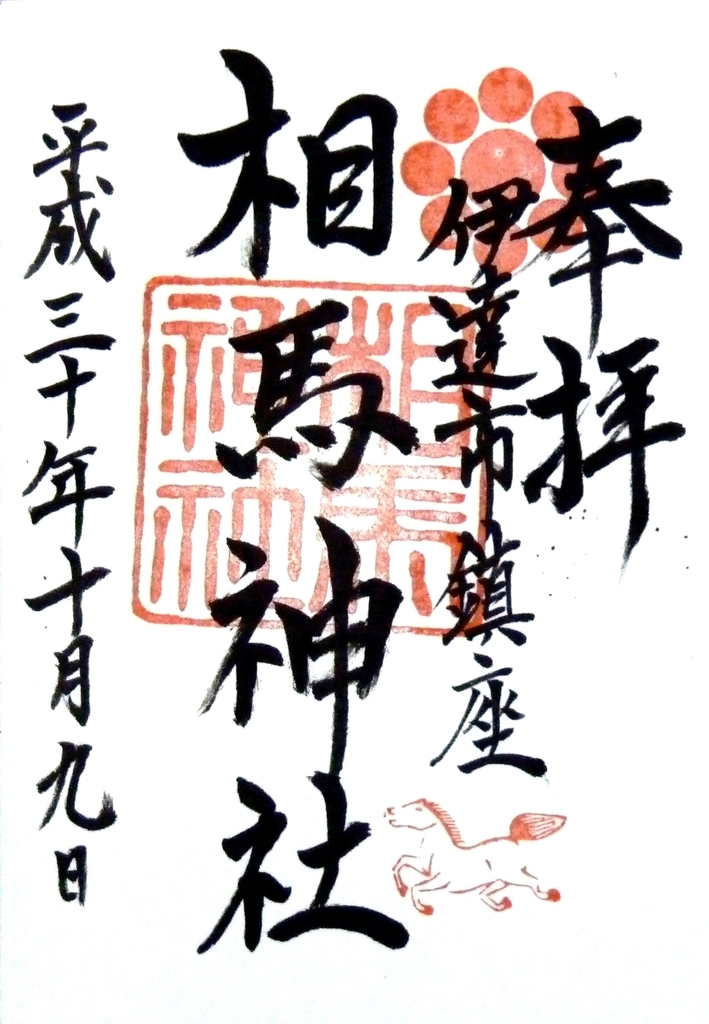 奉拝
伊達市鎮座
相馬神社
相馬神社
平成三十年十月九日